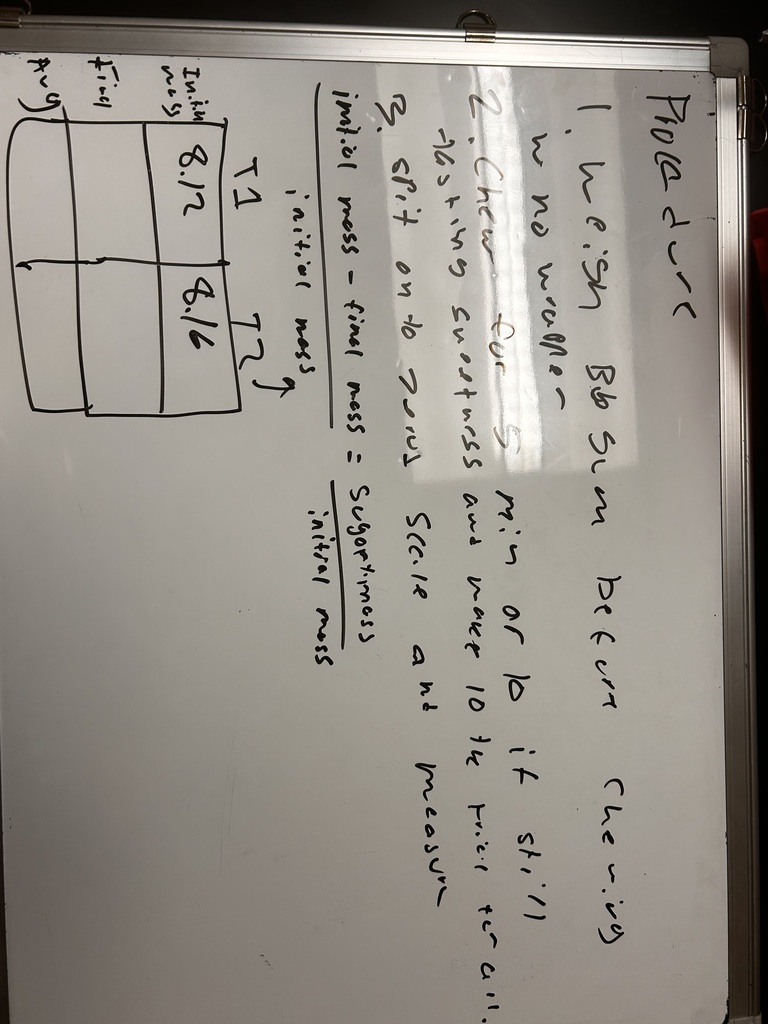 Procedure
1. Weigh Bb gum before chewing
w no wrapper
2. Chew for 5 min or 10 if still
tasting sweetness and make 10 the trial for all.
3. spit on to scale and measure
initial mass - final mass = sugar mass
initial mass initial mass
T1 T2 g
Initi mass 8.12 8.16
Final
Avg